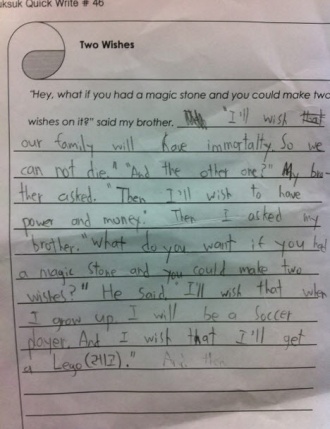 uksuk Quick Write # 46
Two Wishes
"Hey, what if you had a magic stone and you could make two
wishes on it?" said my brother. "I'll wish that
our family will have immortalty. So we
can not die." "And the other one?" My bro-
ther asked. "Then I'll wish to have
power and money." Then I asked my
brother. "What do you want if you had
a magic stone and you could make two
wishes?" He said, "I'll wish that when
I grow up, I will be a soccer
player. And I wish that I'll get
a Lego (레고)." And then